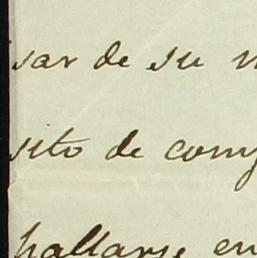 sar de su
sito de
hallarse en